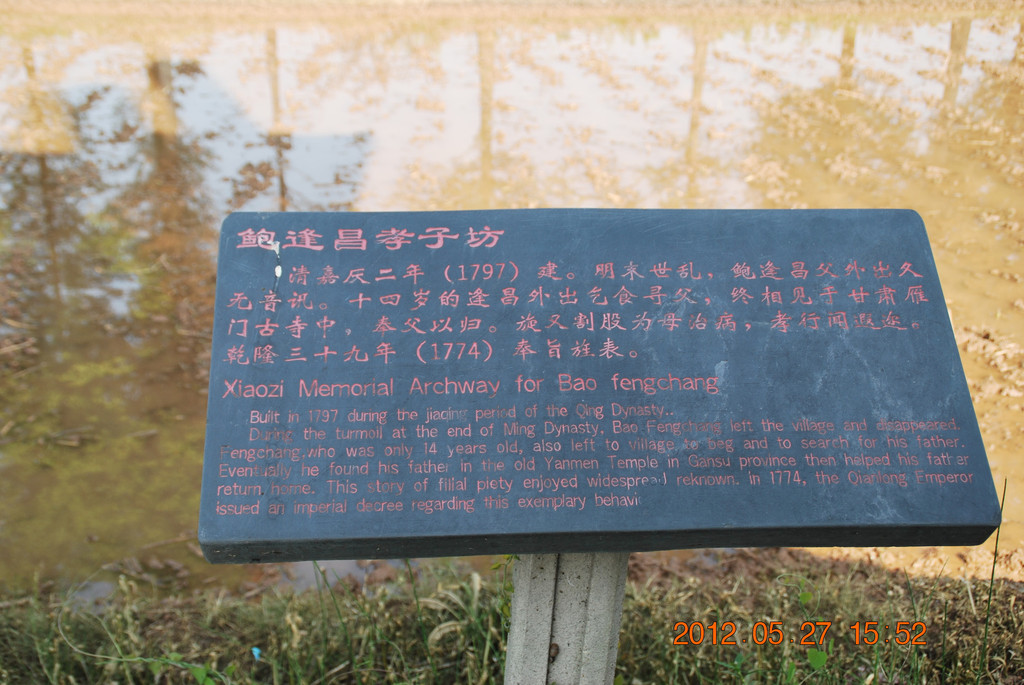 鲍逢昌孝子坊
清嘉庆二年（1797）建。明末世乱，鲍逢昌父外出久
无音讯。十四岁的逢昌外出乞食寻父，终相见于甘肃雁
门古寺中，奉父以归。旋又割股为母治病，孝行闻遐迩。
乾隆三十九年（1774）奉旨旌表。
Xiaozi Memorial Archway for Bao fengchang
Built in 1797 during the jiaqing period of the Qing Dynasty..
During the turmoil at the end of Ming Dynasty, Bao Fengchang left the village and disappeared.
Fengchang.who was only 14 years old, also left to village to beg and to search for his father.
Eventually he found his father in the old Yanmen Temple in Gansu province then helped his father
return home. This story of filial piety enjoyed widespread reknown. in 1774, the Qianlong Emperor
issued an imperial decree regarding this exemplary behavi
2012.05.27 15:52